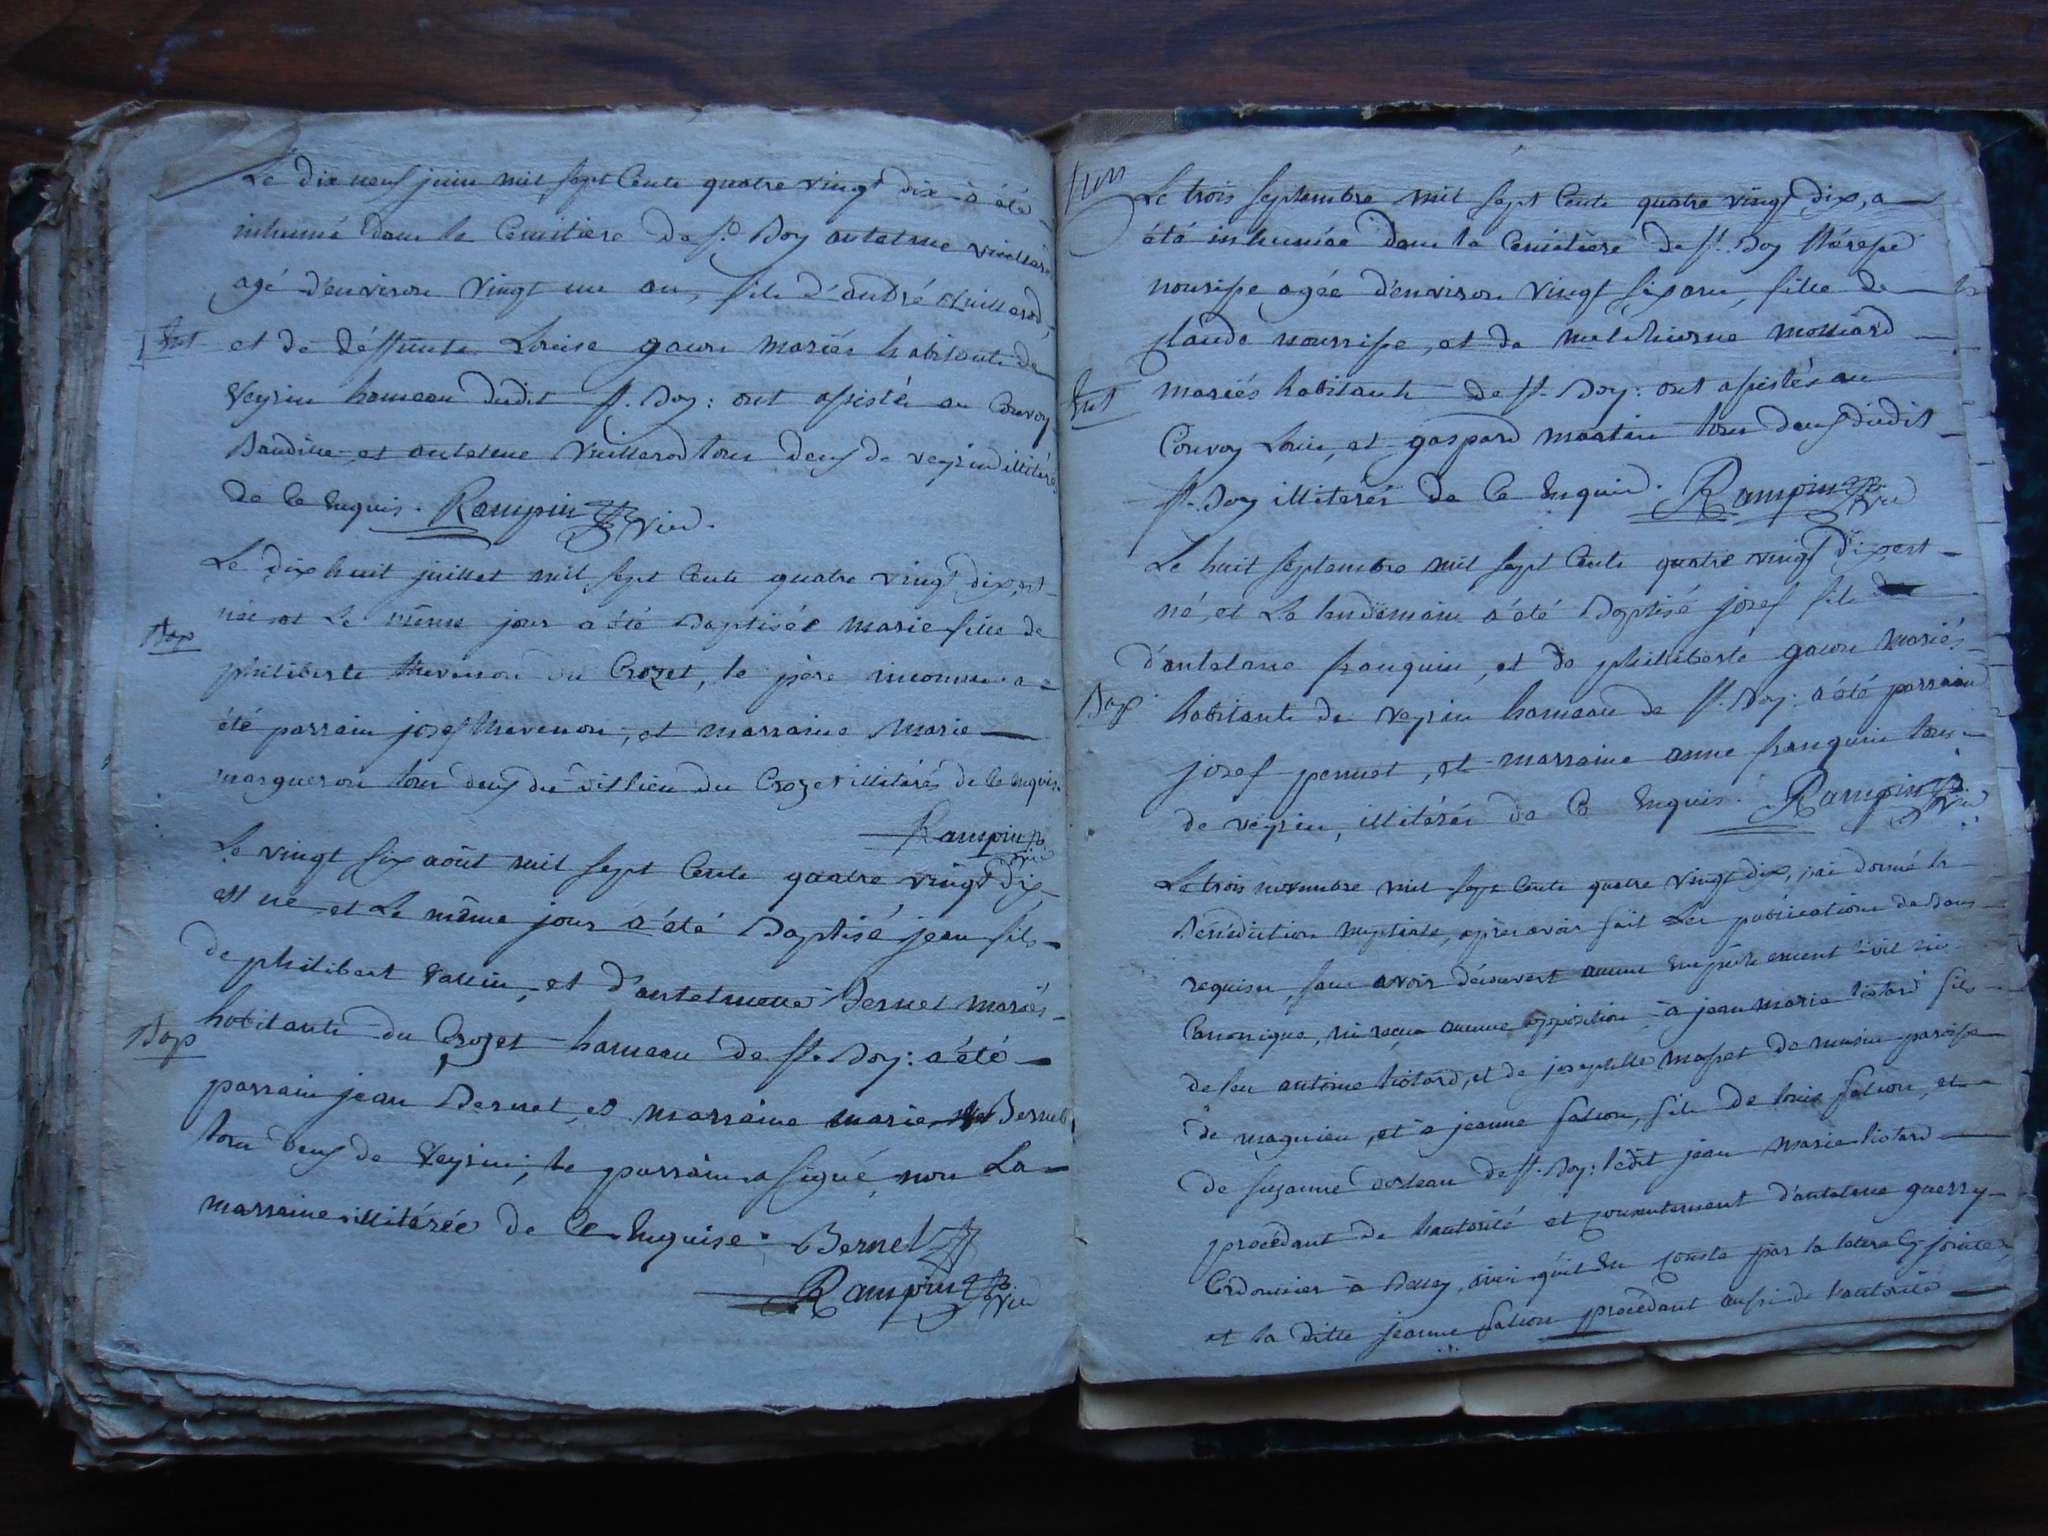 Le dix neuf juin mil sept cents quatre vingt dix a été
inhumé dans le cemitière de st. Boy antelme vuillerod
agé d'environ vingt un an, fils d'andré vuillerod,
Ent
et de déffunte Louise gacon mariés habitants de
Veyrin hameau dudit st. Boy: ont assistés au Convoy
Baudille et antelme Vuillerod tous deux de veyrin illitérés
de ce Enquis. Rampin vic.
Le dix huit juillet mil sept cents quatre vingt dix, est
née et le même jour a été Baptisée marie fille de
Bap
philiberte thevenon du Crozet, le père inconnu a
été parrain josef thevenon, et marraine Marie
margueron tous deux du dit lieu du Crozet illitérés de ce enquis.
Rampin vic
Le vingt six août mil sept cents quatre vingt dix
est né et le même jour a été Baptisé jean fils
de philibert Vallin, et d'antelmette Bernet mariés
Bap
habitants du Crozet hameau de st. Boy: a été
parrain jean Bernet, et marraine marie Bernet
tous deux de Veyrin; le parrain a signé, non La
marraine illitérée de ce Enquise. Bernet
Rampin vic
Le trois septembre mil sept cents quatre vingt dix, a
été inhumée dans le cemitière de st. Boy
nourisse agée d'environ vingt six ans, fille de
claude nourrisse, et de melchiorne molliard
Ent
mariés habitants de st. Boy: ont assistés au
Convoy Louis, et gaspard martin tous deux dudit
st. Boy illitérés de ce Enquis. Rampin vic
Le huit septembre mil sept cents quatre vingt dix, est
né, et Le lendemain a été Baptisé josef fils
d'antelme franquin, et de philliberte gacon mariés
Bap
habitants de veyrin hameau de st. Boy: a été parrain
josef pernet, et marraine anne franquin tous
de veyrin, illitérés de ce Enquis. Rampin vic
Le trois novembre mil sept cents quatre vingt dix, j'ai donné la
Bénédiction nuptiale, après avoir fait Les publications de Bans
requises, sans avoir découvert aucun empêchement civil ni
Canonique, ni reçu aucune opposition à jean marie liotard fils
de feu antoine liotard, et de josephte masset de musin paroisse
de magnieu, et à jeanne falcon, fille de louis falcon, et
de suzanne de st. Boy: ledit jean marie liotard
procédant de l'autorité et consentement d'antelme guerry
Cordonnier à Belley, ainsi qu'il en conste par la lettre cy jointe,
et la ditte jeanne falcon procédant aussi de l'autorité